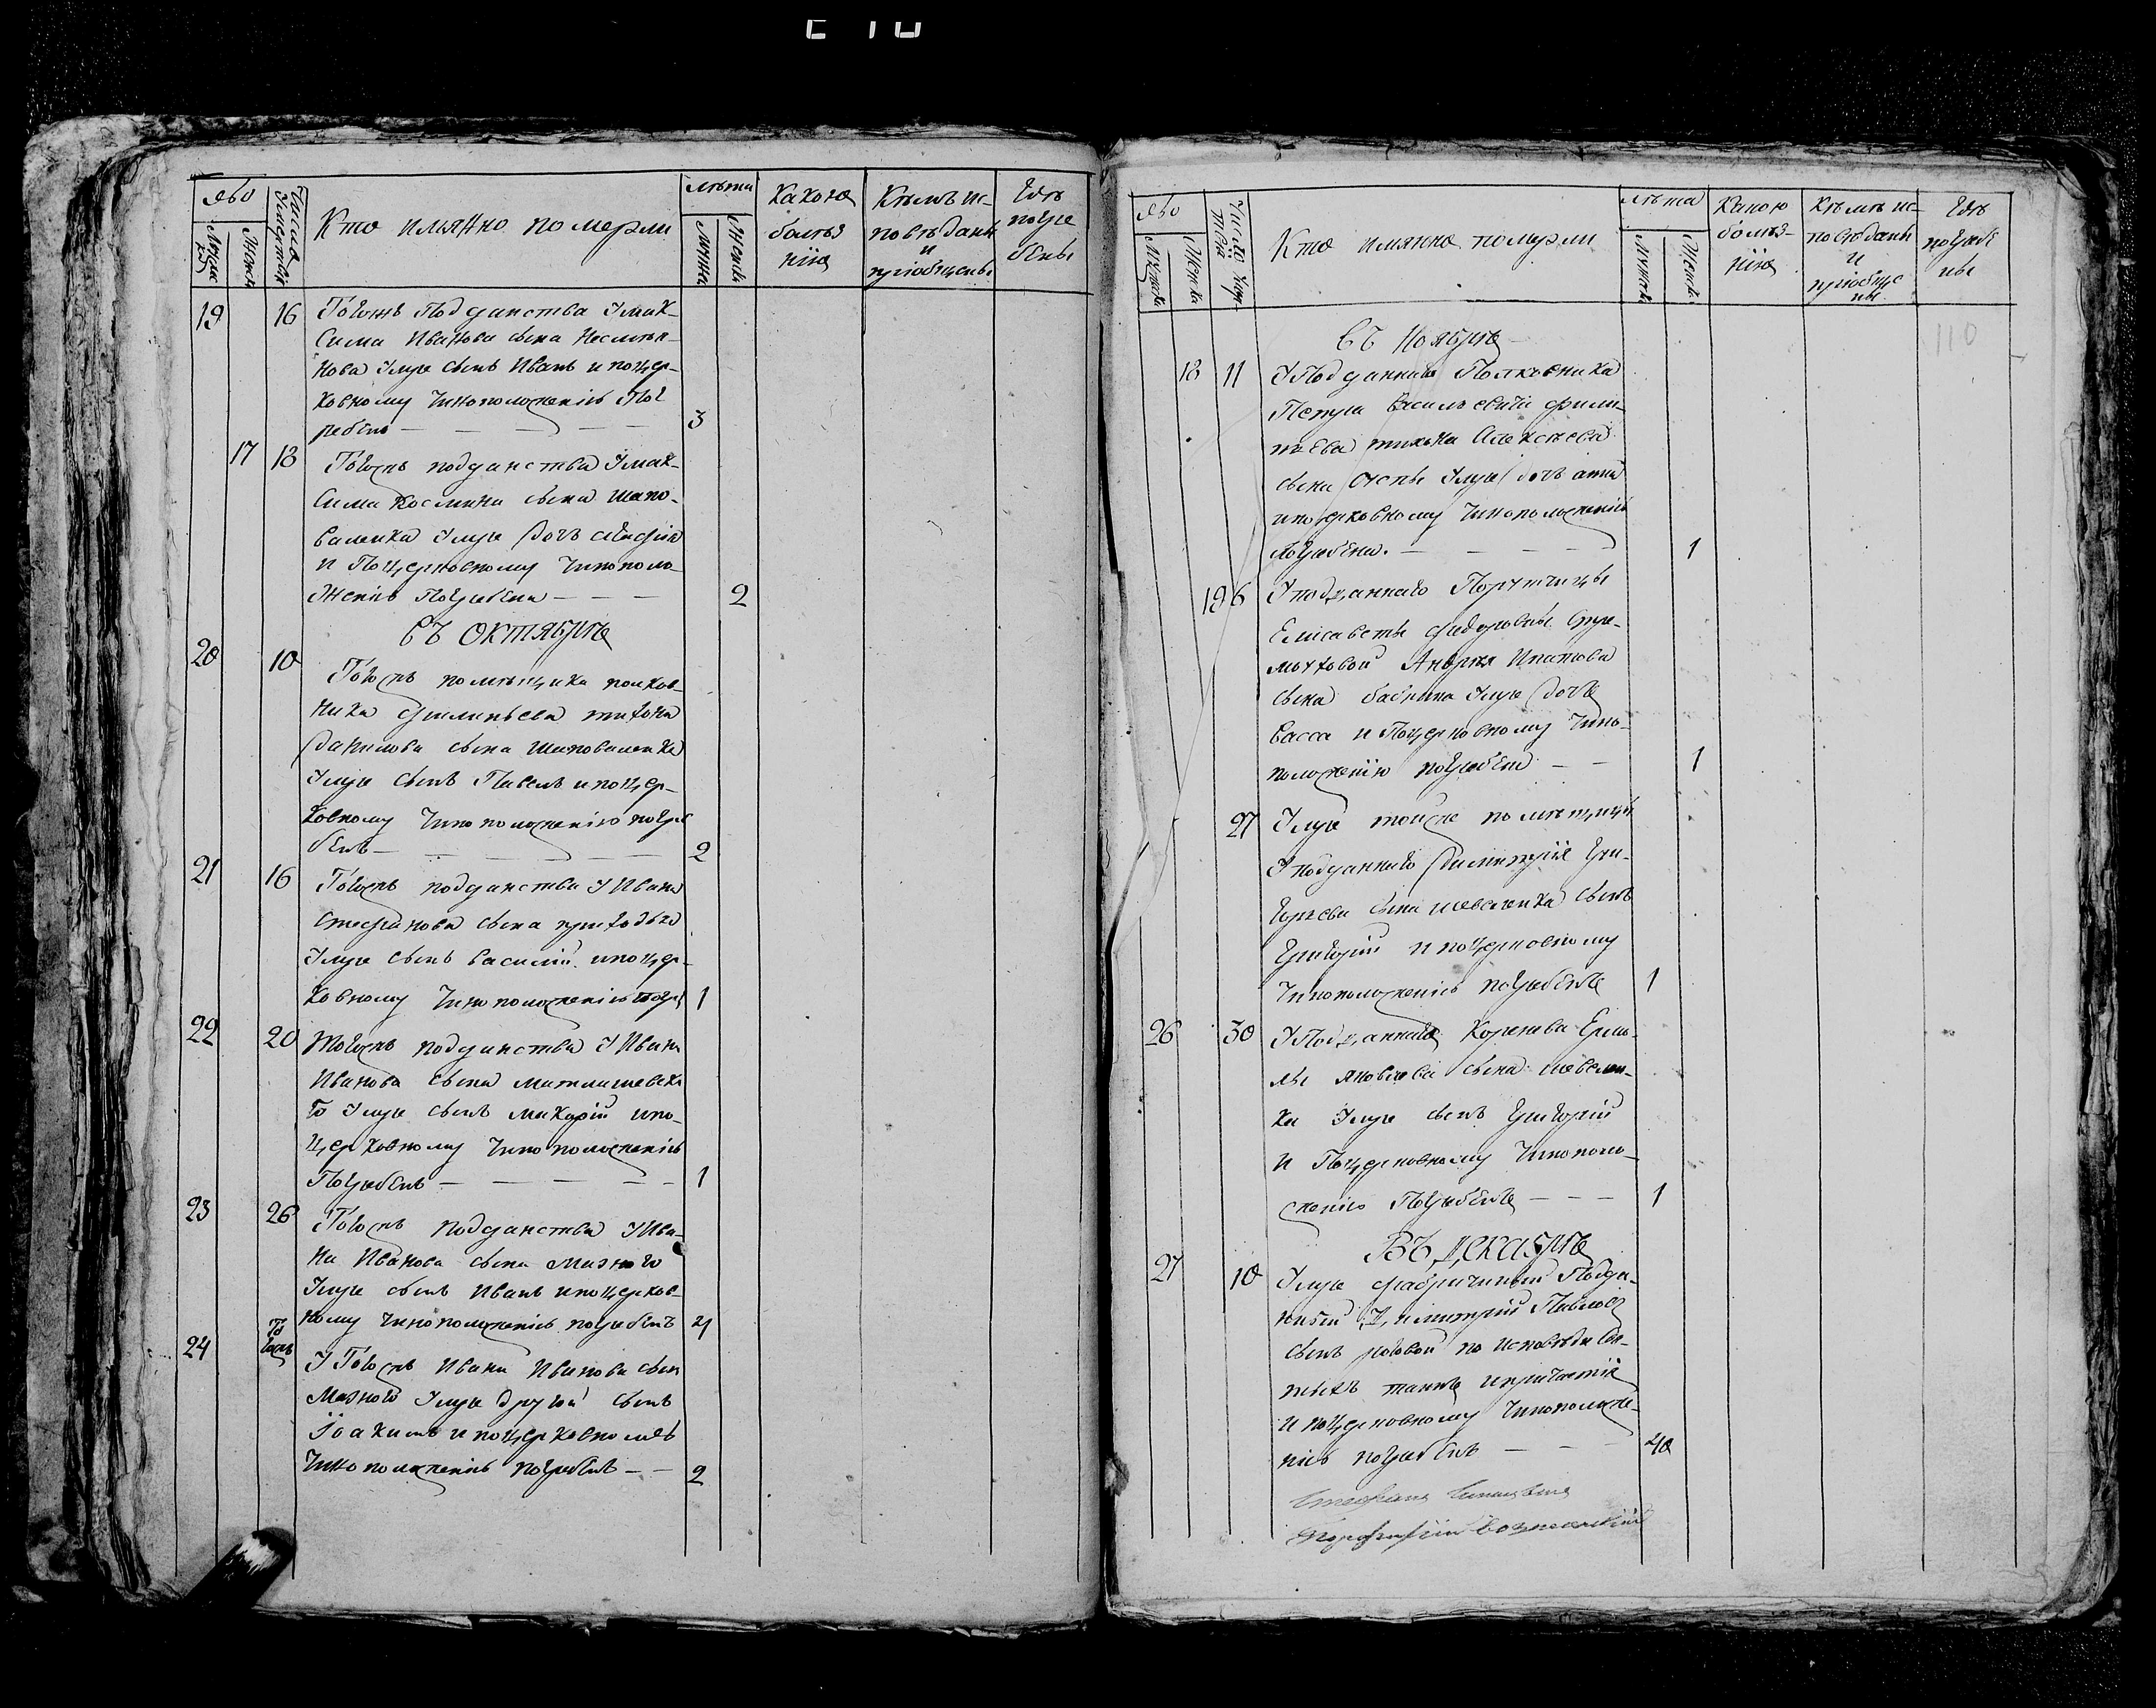 Что
Число усмертвія
Кто имянно померли
лѣта
какою
болѣз
нію
Кѣмъ ис-
повѣданы
и
пріобщены
Гдѣ
погре
бены
Женск
19 16 Тогожъ подданства у мак-
сима Иванова сына
нова умре сынъ Иванъ и поцер-
ковному чиноположенію пог
ребенъ — — — — 3
17 18 Тогожъ подданства у мак-
сима косминa сына шапо-
валенка умре дочь
и поцерковному чинополо-
женію погребена — — — 2
Въ октябрѣ
20 10 Тогожъ помѣщика полков-
ника филипьева тихона
данилова сына шаповаленка
умре сынъ Павелъ и поцер-
ковному чиноположенію погре
бенъ — — — — 2
21 16 Тогожъ подданства у Ивана
стефанова сына приходька
умре сынъ василій и поцер-
ковному чиноположенію погр 1
22 20 тогожъ подданства у Ивана
Иванова сына
го умре сынъ макарій и по-
церковному чиноположенію
погребенъ — — — — 1
23 26 Тогожъ подданства у Ива-
на Иванова сына мазного
умре сынъ Иванъ и поцерков-
ному чиноположенію погребенъ 4
24 тогожъ у Тогожъ Ивана Иванова сына
мазного умре другой сынъ
Іоакимъ и поцерковному
чиноположенію погребенъ — — 2
Кто имянно померли
лѣта
какою
болѣз-
нію
Кѣмъ ис-
повѣданы
и
пріобще
ны
Гдѣ
погребе
ны
110
Въ Ноябрѣ
18 11 У подданнаго Полковника
Петра васильевича фили-
пьева тихона Алексѣева
сына умре дочь анна
и поцерковному чиноположенію
погребена. — — — — 1
19 6 У подданнаго Порутчицы
Елисаветы федоровны Стре-
моуховой Андрея Ипатова
сына бабича умре дочь
васса и поцерковному чино-
положенію погребена — — 1
27 Умре тойже помѣщицы
у подданнаго димитрія гри-
горьева сына шевченка сынъ
григорій и поцерковному
чиноположенію погребенъ 1
26 30 У подданнаго Корнева Ерем-
ы яковлева сына шевчен-
ка умре сынъ григорій
и поцерковному чинополо-
женію погребенъ — — — 1
Въ декабрѣ
27 10 Умре фабричный подда-
нный Димитрій Павловъ
сынъ роговой по исповѣди свя-
тыхъ таинъ и причастія
и поцерковному чиноположе-
нію погребенъ — — — 40